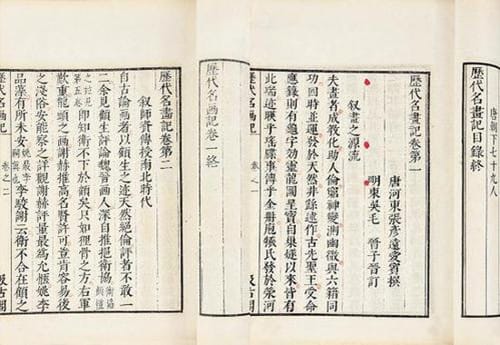 唐朝下七十九人
歷代名畫記目錄終
歷代名畫記卷第一
唐河東張彥遠愛賓撰
明東吳毛 晉子晉訂
叙畫之源流
夫畫者成教化助人倫窮神變測幽微與六籍同
功四時並運發於天然非繇述作古先聖王受命
應籙則有龜字効靈龍圖呈寶自巢燧以來皆有
此瑞迹暎乎瑤牒事傳乎金冊庖犧氏發於滎河
歷代名画記 卷之一
歷代名画記卷一終
歷代名畫記卷第二
叙師資傳授南北時代
自古論畫者以顧生之迹天然絕倫評者不敢一
二余見顧生評論魏晉画人深自推挹衛協
即知衛不下於顧矣只如狸骨之方右軍
歎重龍頭之画謝赫推高名賢許可豈肯容易後
之淺俗安能察之詳觀謝赫評量最為允愜姚李
品藻有所未安李駿謝云衛不合在顧之
歷代名画記 卷之二 汲古閣